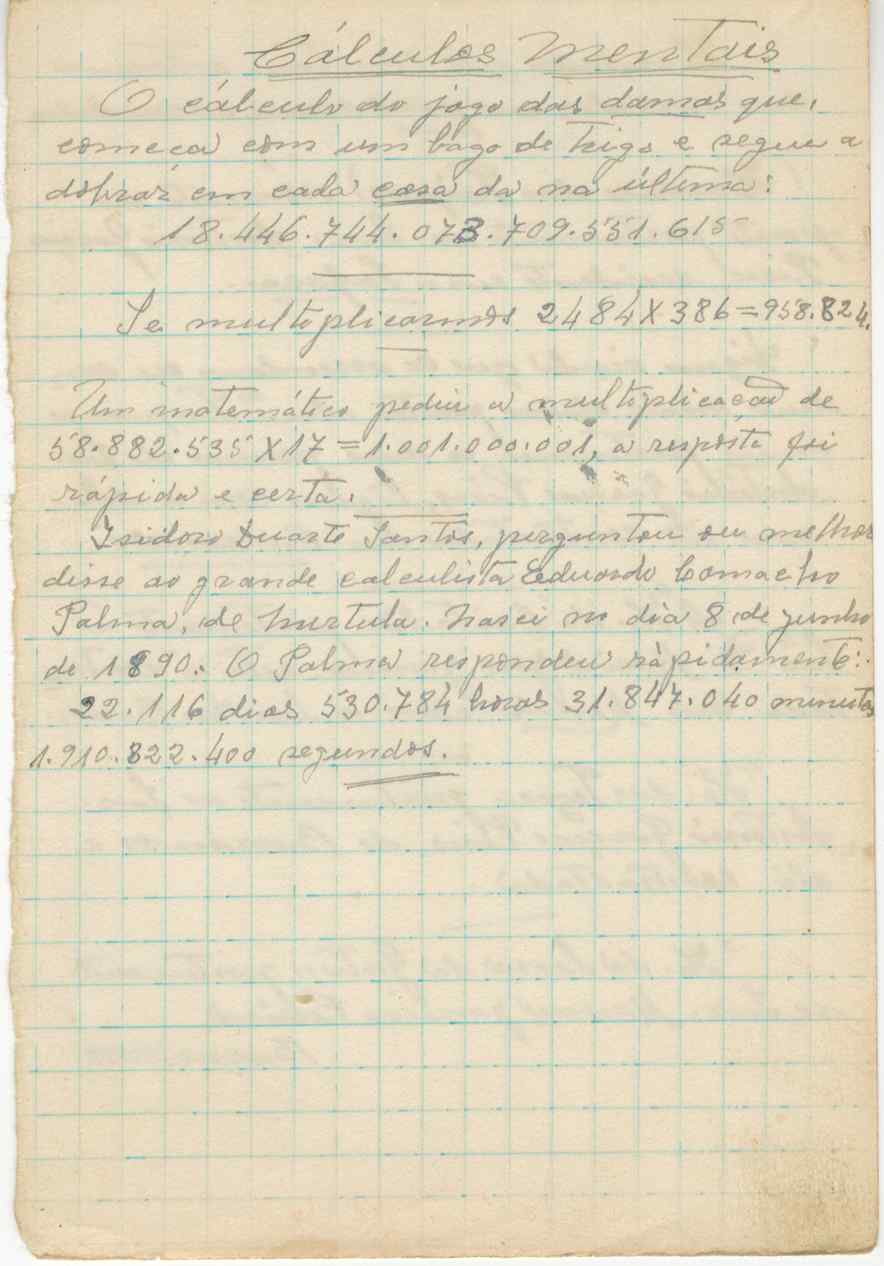 Cálculos Mentais
O cálculo do jogo das damas que,
comeca com um bago de trigo e segue a
dobrar em cada casa da na última:
18.446.744.073.709.551.615
Se multiplicarmos 2484X386=958.824.
Um matemático pediu a multiplicacão de
58.882.535X17=1.001.000.001, a resposta foi
rápida e certa.
Isidoro Duarte Santos, perguntou ou melhor
disse ao grande calculista Eduardo Camacho
Palma, de Murtula. Nasci no dia 8 de junho
de 1890. O Palma respondeu ràpidamente:
22.116 dias 530.784 horas 31.847.040 minutos
1.910.822.400 segundos.